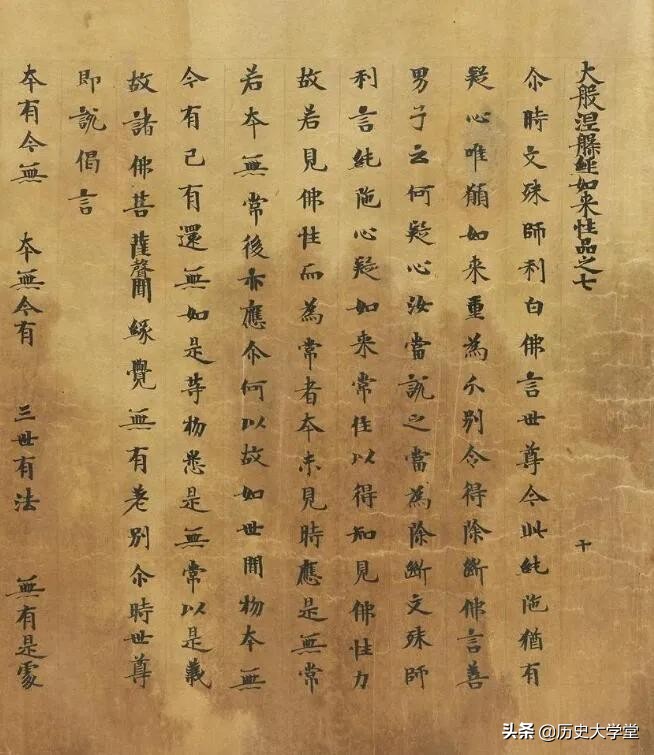 大般涅槃經如来性品之七
十
尒時文殊師利白佛言世尊今此純陁猶有
疑心唯願如来重為分别令得除斷佛言善
男子云何疑心汝當說之當為除斷文殊師
利言純陁心疑如来常住以得知見佛性力
故若見佛性而為常者本未見時應是無常
若本無常後亦應尒何以故如世間物本無
今有已有還無如是等物悉是無常以是義
故諸佛菩薩聲聞緣覺無有差别尒時世尊
即說偈言
本有今無 本無今有 三世有法 無有是處
头条 @历史大学堂